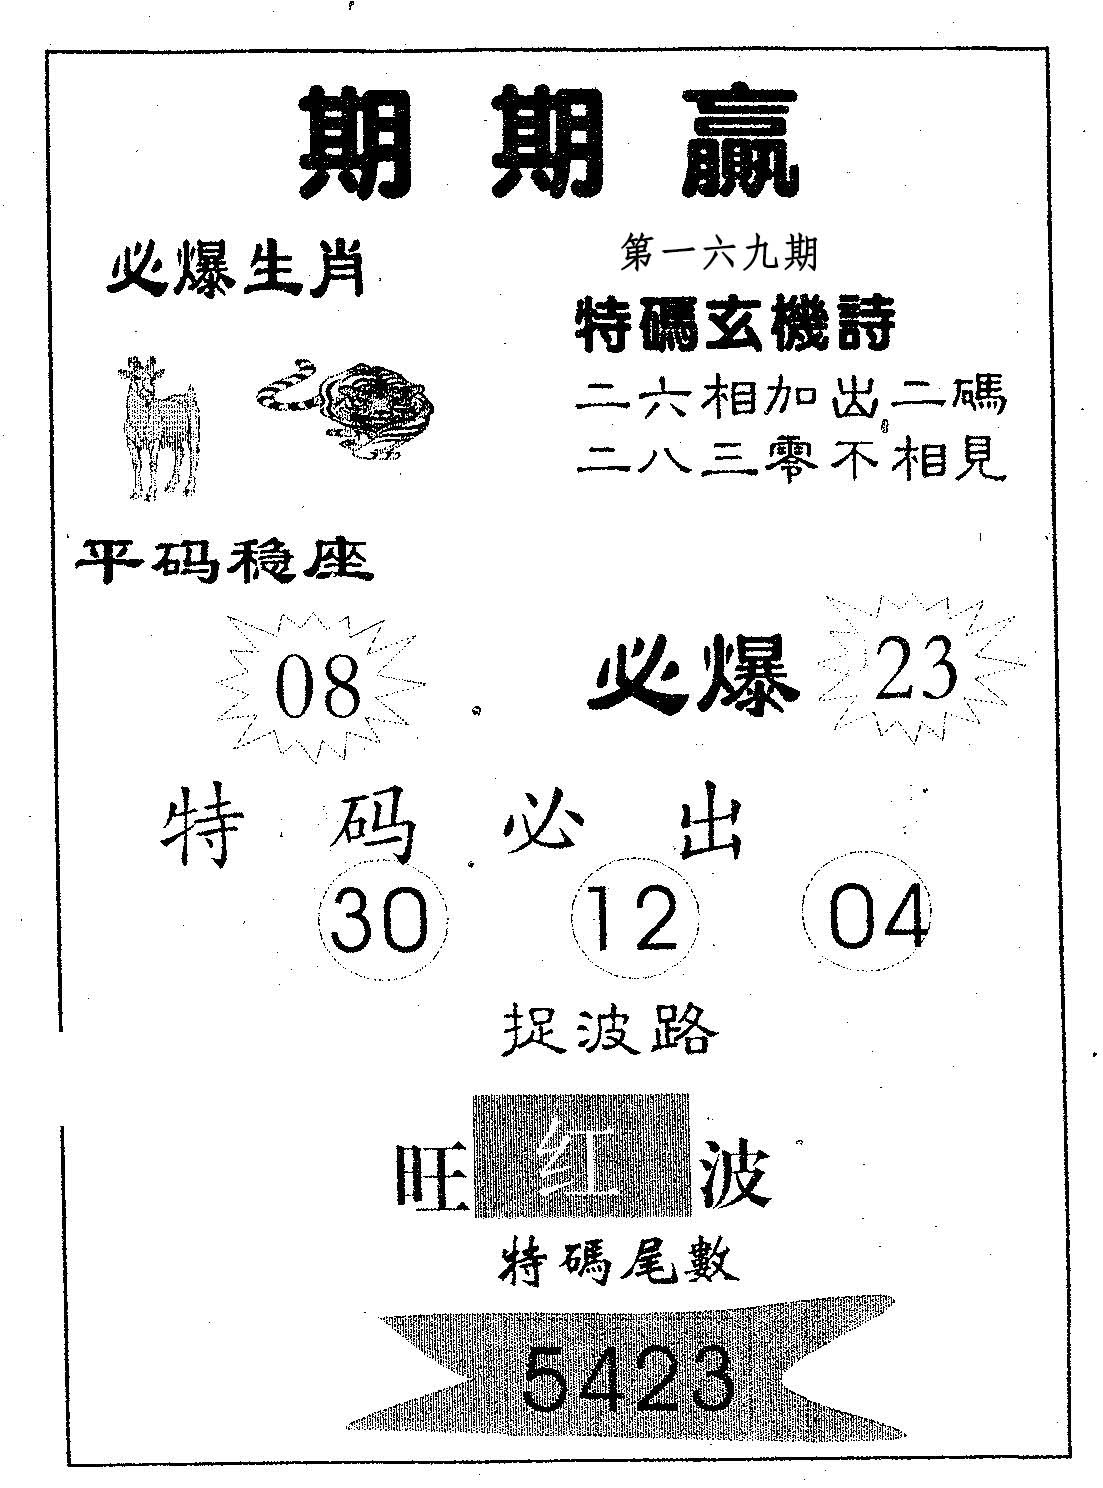 期期贏
必爆生肖
第一六九期
特碼玄機詩
二六相加出二碼
二八三零不相見
平码稳座
08
必爆 23
特码必出
30 12 04
捉波路
旺红波
特碼尾數
5423